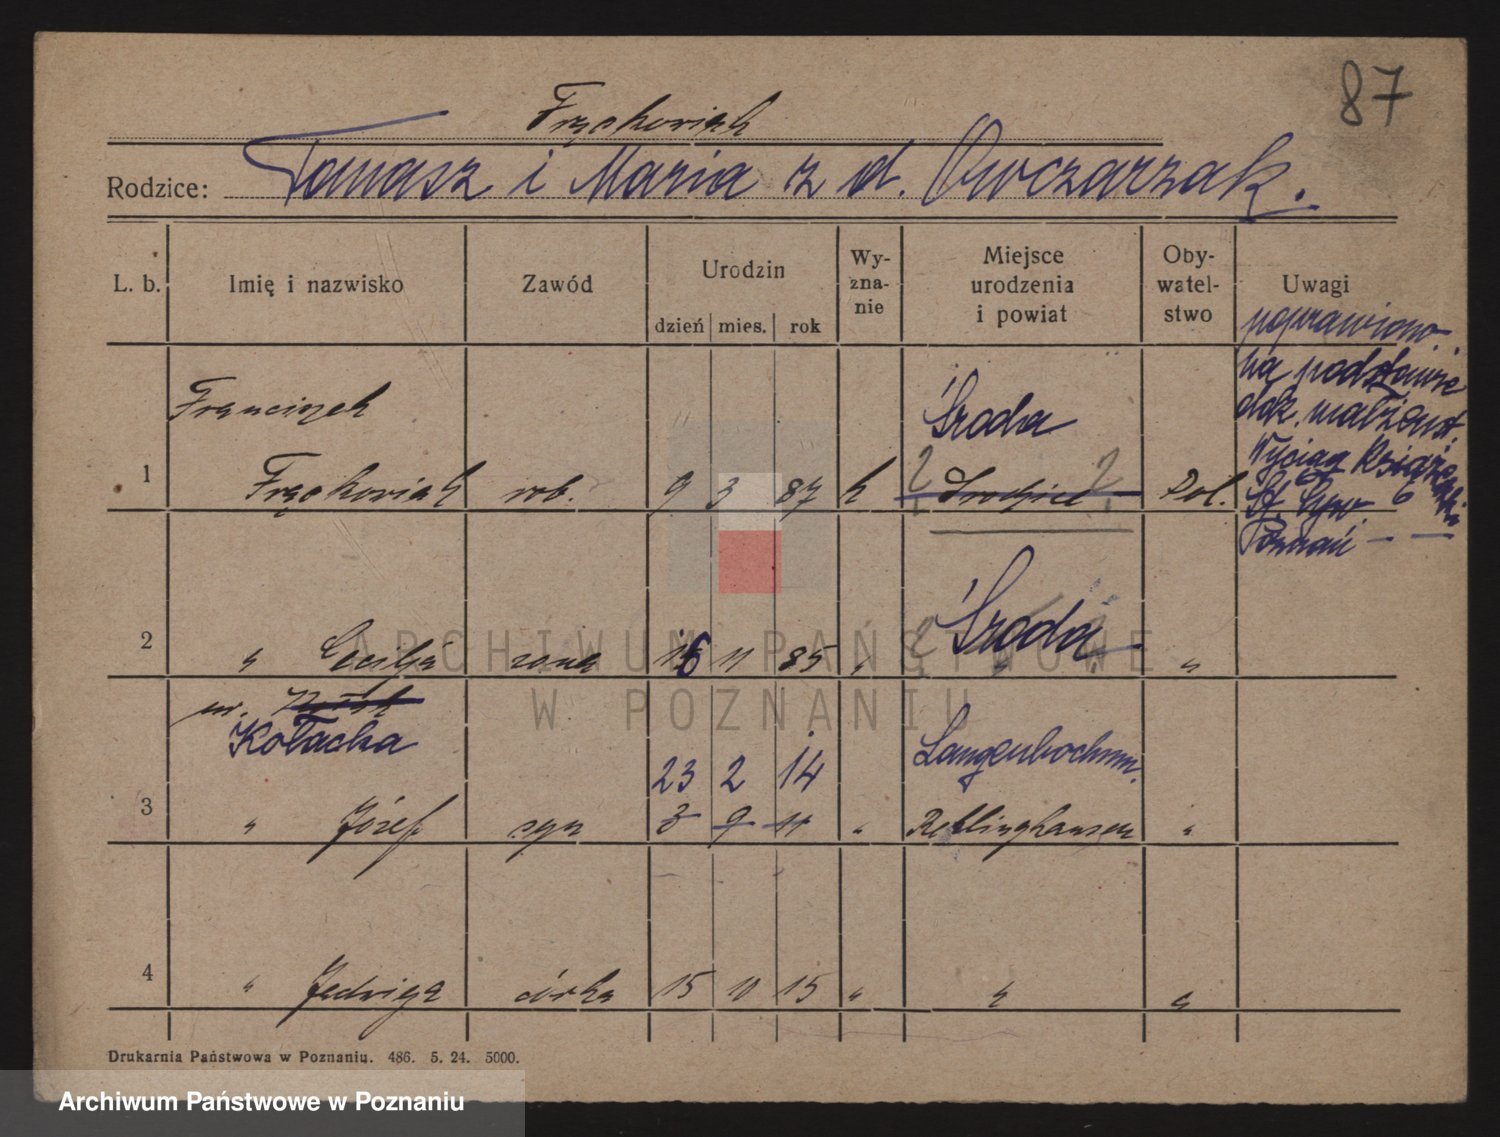 87
Frąckowiak
Rodzice: Tomasz i Maria z d. Owczarzak.
L. b. Imię i nazwisko Zawód Urodzin Wy-zna-nie Miejsce urodzenia i powiat Oby-watel-stwo Uwagi
dzień mies. rok
poprawiono
na podstawie
dok. małżeńst.
Wyciąg Książeczki
Poznań
Franciszek Środa
1 Frąckowiak rob. 9 3 87 k Pol.
Środa
2 " Cecylja żona 15 11 85 " " "
ur.
Kołacka
Langenbochum.
23 2 14
3 " Józef syn 3 9 11 " Reklinghausen "
4 " Jadwiga córka 15 11 15 " " "
Drukarnia Państwowa w Poznaniu. 486. 5. 24. 5000.
ARCHIWUM PAŃSTWOWE
W POZNANIU
Archiwum Państwowe w Poznaniu